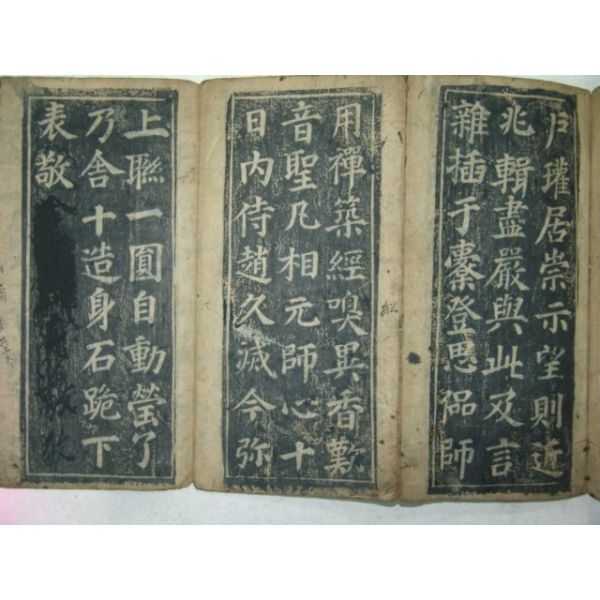 戶瓘居崇示望則近
兆輯盡嚴與此及言
雜插于橐登思偘師
用禪築經嗅異香歎
音聖凡相元師心十
日內侍趙久減今弥
上聮一圎自動瑩了
乃舍十造身石跪下
表敬